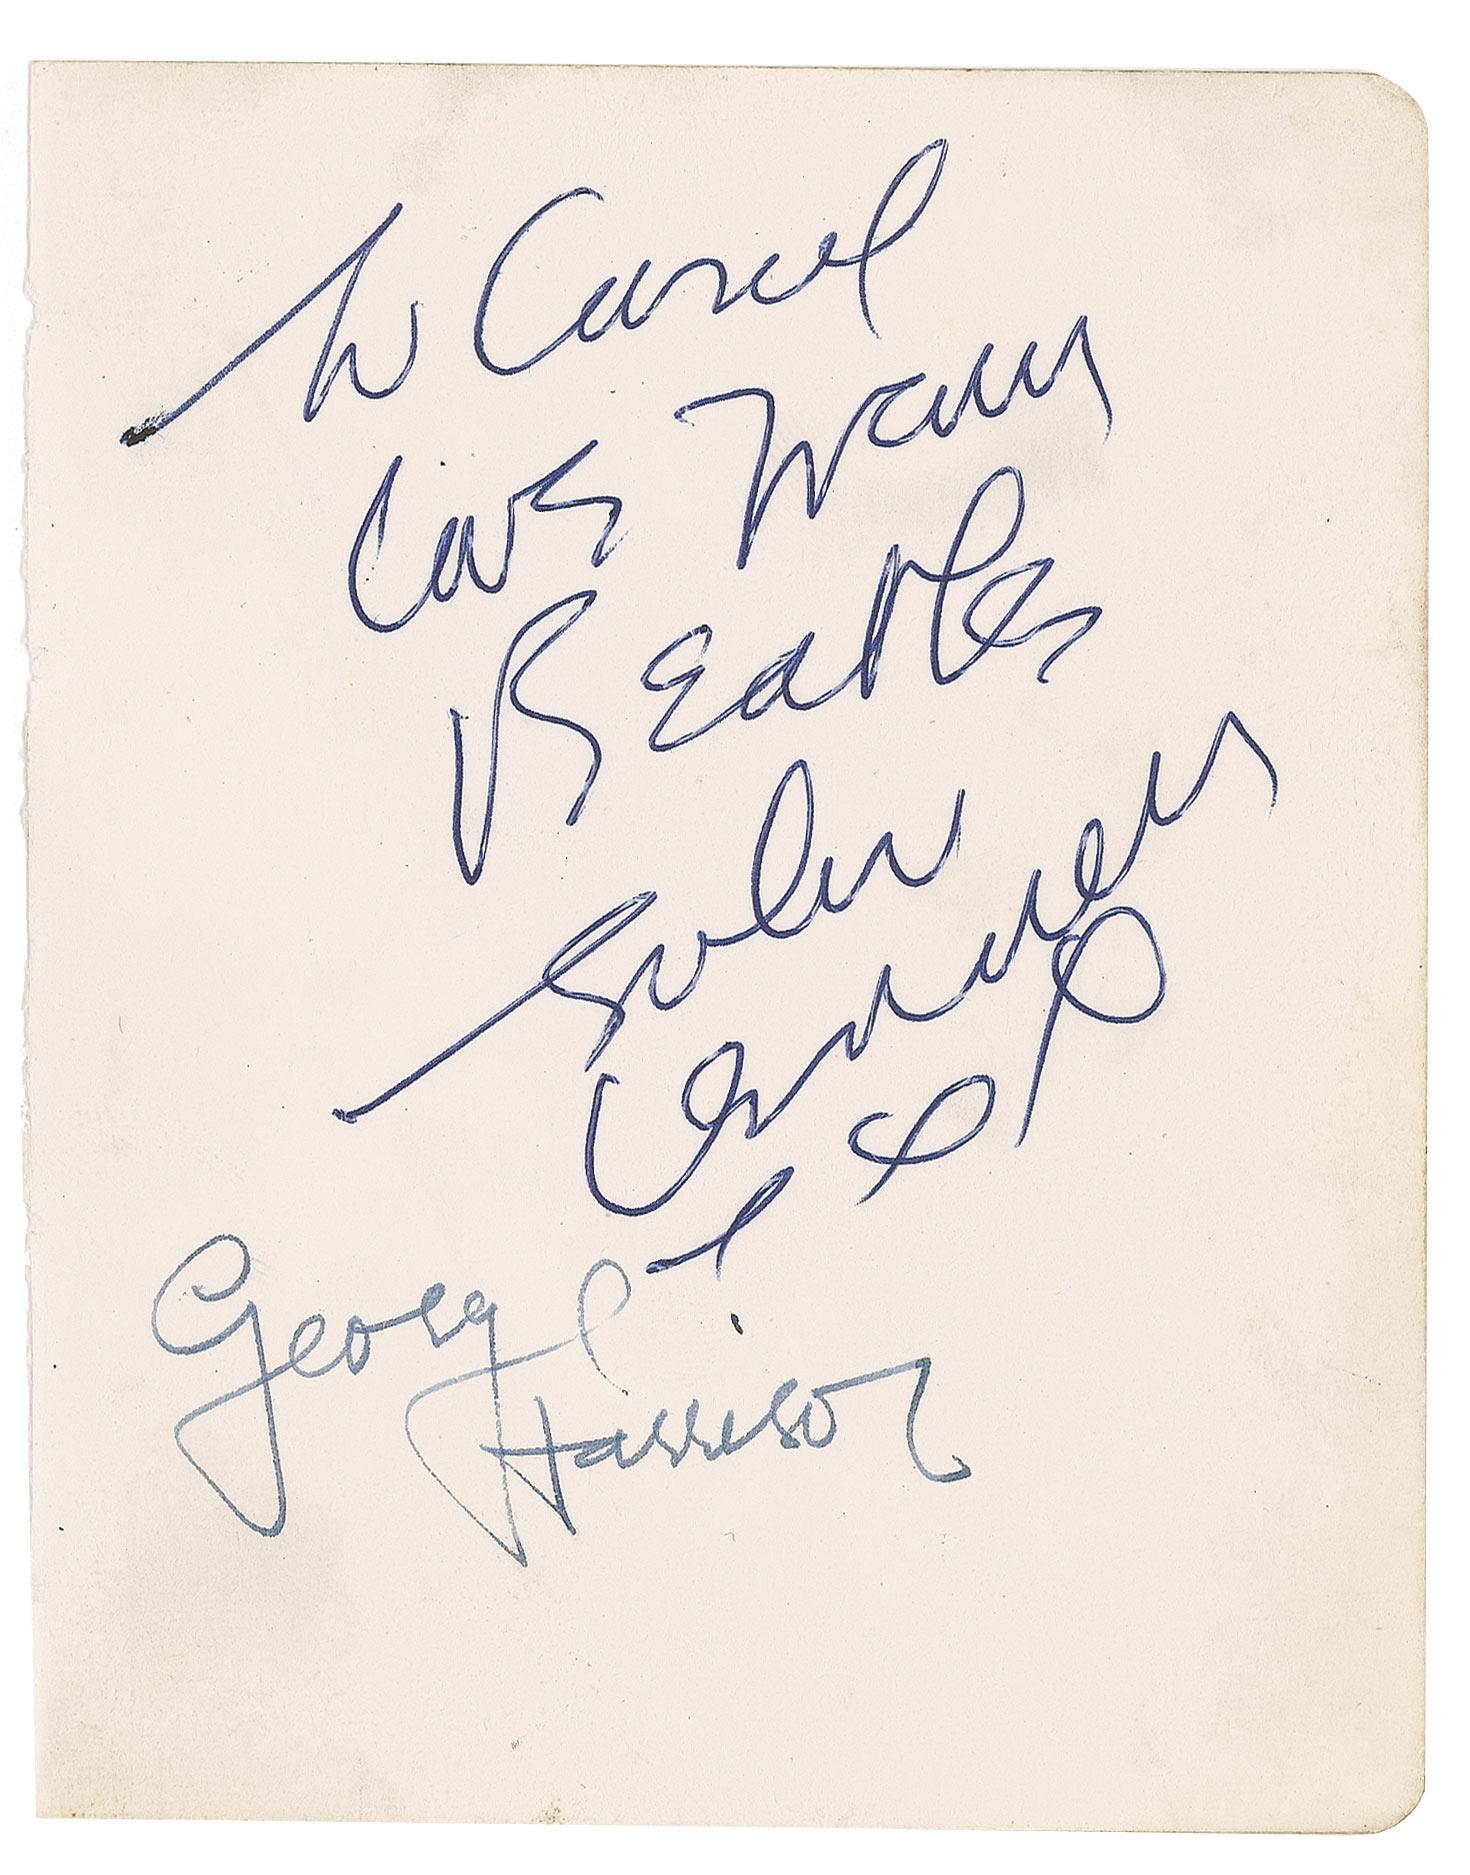 to Carol
love from
Beatles
John
Lennon
George
Harrison